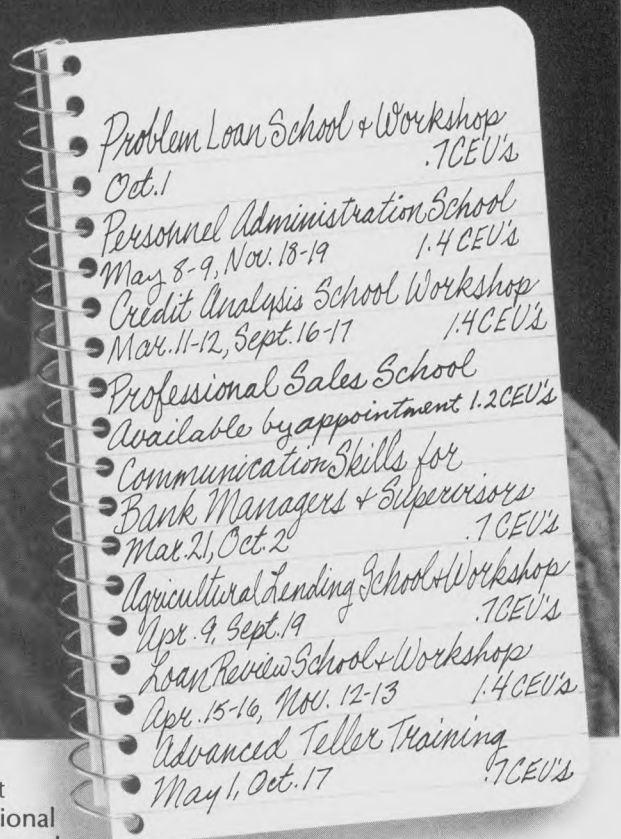 Problem Loan School + Workshop
Oct. 1 .7 CEU's
Personnel Administration School
May 8-9, Nov. 18-19 1.4 CEU's
Credit Analysis School Workshop
Mar. 11-12, Sept. 16-17 1.4 CEU's
Professional Sales School
Available by appointment 1.2 CEU's
Communication Skills for
Bank Managers + Supervisors
Mar. 21, Oct. 2 .7 CEU's
Agricultural Lending School + Workshop
Apr. 9, Sept. 19 .7 CEU's
Loan Review School + Workshop
Apr. 15-16, Nov. 12-13 1.4 CEU's
Advanced Teller Training
May 1, Oct. 17 .7 CEU's
t
ional